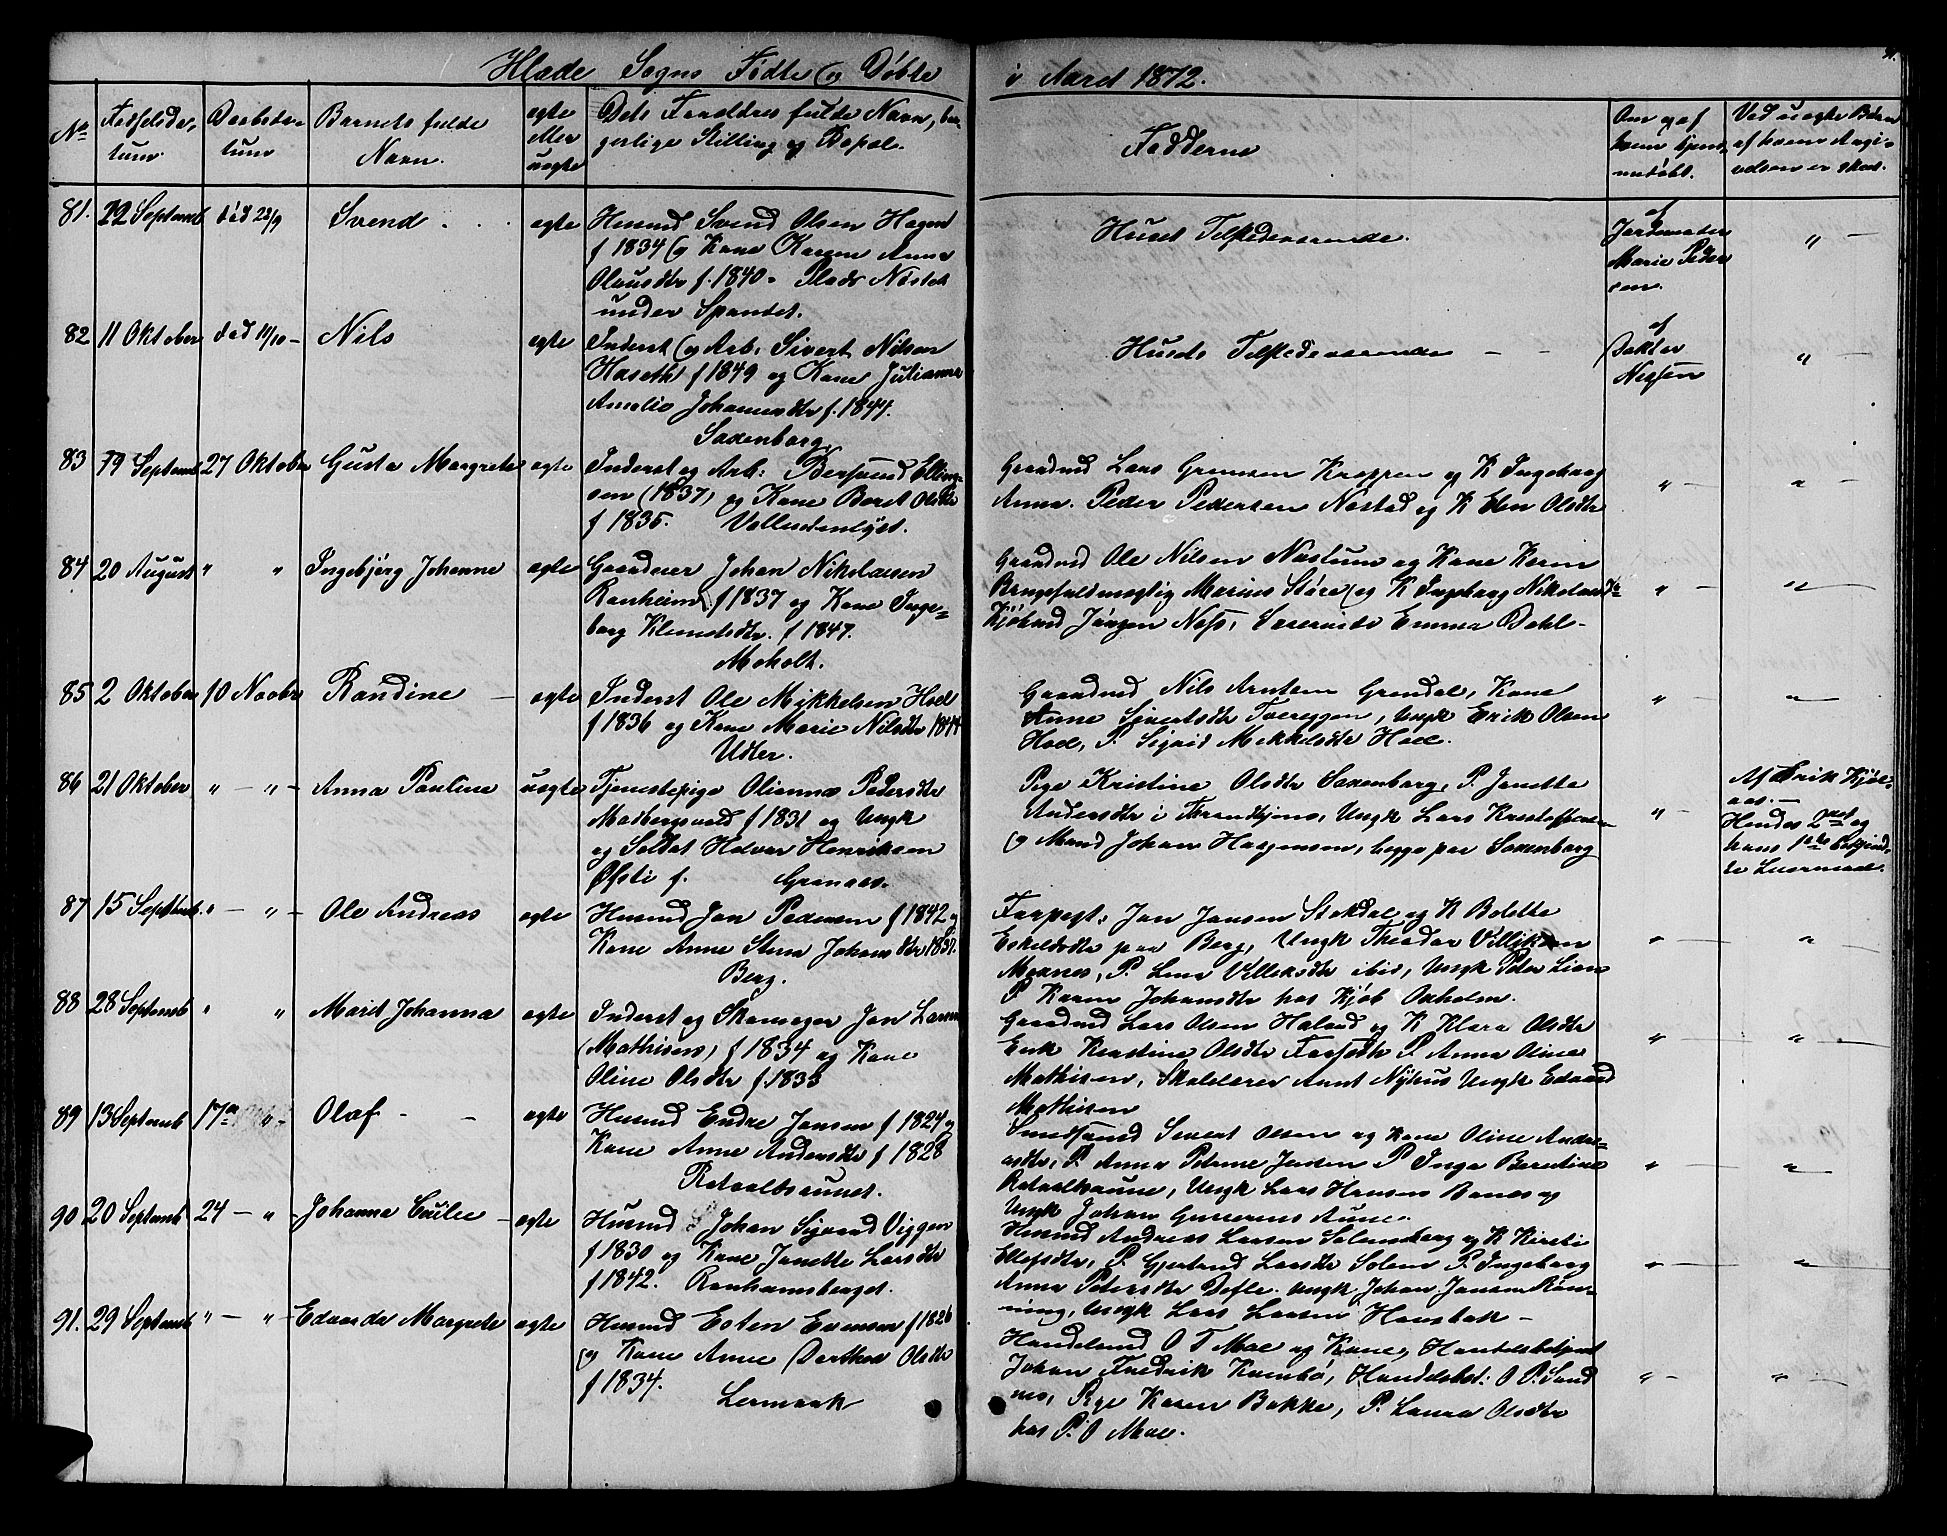 Hlade Sogns Fødte og Døbte i Aaret 1872.
No Fødselsda- tum. Daabsda- tum Barnets fulde Navn. ægte eller uægte Dets Forældres fulde Navn, bor- gerlige Stilling og Bopæl. Fadderne Om og af hvem hjem- medøbt. Ved uægte Børn af hvem Angi- velsen er skeet.
81. 22 Septemb død 22/9 Svend ægte Husmd Svend Olsen Hagen
f 1834 og Kone Karen Anna
Olausdtr f. 1840 - Plads Næstet
under Spandet.
Huset Tilstedeværende.
af
Jordmoder
Marie Peder
sen.
82 11 Oktober død 11/10 - Nils ægte Inderst og Arb. Sivert Nilsen
Haseth f 1849 og Kone Julianna
Amalie Johannesdtr f. 1844.
Saxenborg
Husets Tilstedeværende
af
Doktor
Nissen
83 19 Septemb 27 Oktober Gusta Margrete ægte Inderst og Arb: Bersvend Elling-
sen (1837) og Kone Beret Olsdtr
f 1835. Vollestenlyst.
Gaardmd Lars Gremsen Kroppen og K Ingeborg
Anna. Peder Pedersen Nøstad og K Elen Olsdtr
84 20 August " " Ingebjørg Johanne ægte Gaardeier Johan Nikolaisen
Ranheim f 1837 og Kone Inge-
borg Klemetsdtr. f 1847.
Moholt.
Gaardmd Ole Nilsen Nostum og Kone Karen
Brugsfuldmægtig Marius Støre og K Ingeborg Nikolaisdtr
Kjøbmd Jørgen Næss, Emma Dahl-
85 2 Oktober 10 Novbr Randine - ægte Inderst Ole Mykkelsen Hoel
f 1836 og Kone Marie Nilsdtr 1844
Udler.
Gaardmd Nils Arntsen Grendal, Kone
Anne Sivertsdtr Tvereggen, Ungk Erik Olsen
Hoel, P. Sigrid Mekkelsdtr Hoel.
86 21 Oktober " - " - Anna Pauline uægte Tjenestepige Olianna Pedersdtr
Madbergsvald f 1831 og Ungk
og Soldat Halvar Henriksen
Øfsti f. Granaas.
Pige Kristine Olsdtr Saxenborg, P. Janette
Andersdtr i Trondhjem, Ungk Lars Kristoffersen
og Mand Johan Hasjensen, begge paa Saxenborg
Af Erik Kjøl-
aas. -
Hendes 2det og
hans 1ste
Leiermaal.
87 15 Septemb. " - " - Ole Andreas ægte Husmd Jon Pedersen f 1842 og
Kone Anne Stina Johansdtr 1837.
Berg.
Forpagt: Jon Jonsen Stokdal og K Bolette
Eskelsdtr paa Berg, Ungk Theodor Villiksen
Moxnes, P. Lena Villeksdtr ibid, Ungk Peter Lian
P Karen Johansdtr hos Kjøb Oxholm.
88 28 Septemb " " Marit Johanna ægte Inderst og Skomager Jon Larsen
(Mathisen) f 1834 og Kone
Oline Olsdtr f. 1833
Gaardmd Lars Olsen Haland og K Klara Olsdtr
Enk Kerstine Olsdtr P Anna Oline
Mathisen, Skolelærer Arnt Nyhus Ungk Edvard
Mathisen
89 13 Septemb 17de " - Olaf - - ægte Husmd Endre Jonsen f 1824 og
Kone Anne Andersdtr f 1828
Rotvoldsaunet.
Smedsvend Sivert Olsen og Kone Oline Andre-
asdtr, P. Anna Petrine Jensen P Inga Berntine
Rotvoldsaune, Ungk Lars Hansen Banes og
Ungk Johan Gunerius Aune.
90 20 Septemb 24 - " Johanna Emilie - ægte Husmd Johan Sivard Viggen
f 1830 og Kone Janette Larsdtr
f 1842. Ranhamsberget.
Husmd Andreas Larsen Solemsberg og K Kirsti
Ellefsdtr, P. Gjertrud Larsdtr Solem P. Ingeborg
Anna Petersdtr Defle. Ungk Johan Jonsen Røn-
ning, Ungk Lars Larsen Hansbak -
91. 29 Septemb " - " Edvarda Margrete ægte Husmd Esten Evensen f 1826
og Kone Anne Dorthea Olsdtr
f 1834.
Lermaak
Handelsmd O T Moe og Kone, Handelsbetjent
Johan Fredrik Kambø, Handelsbet: O P. Sand
nes, Pige Karen Bakke, P. Laura Olsdtr
hos P. O Moe.